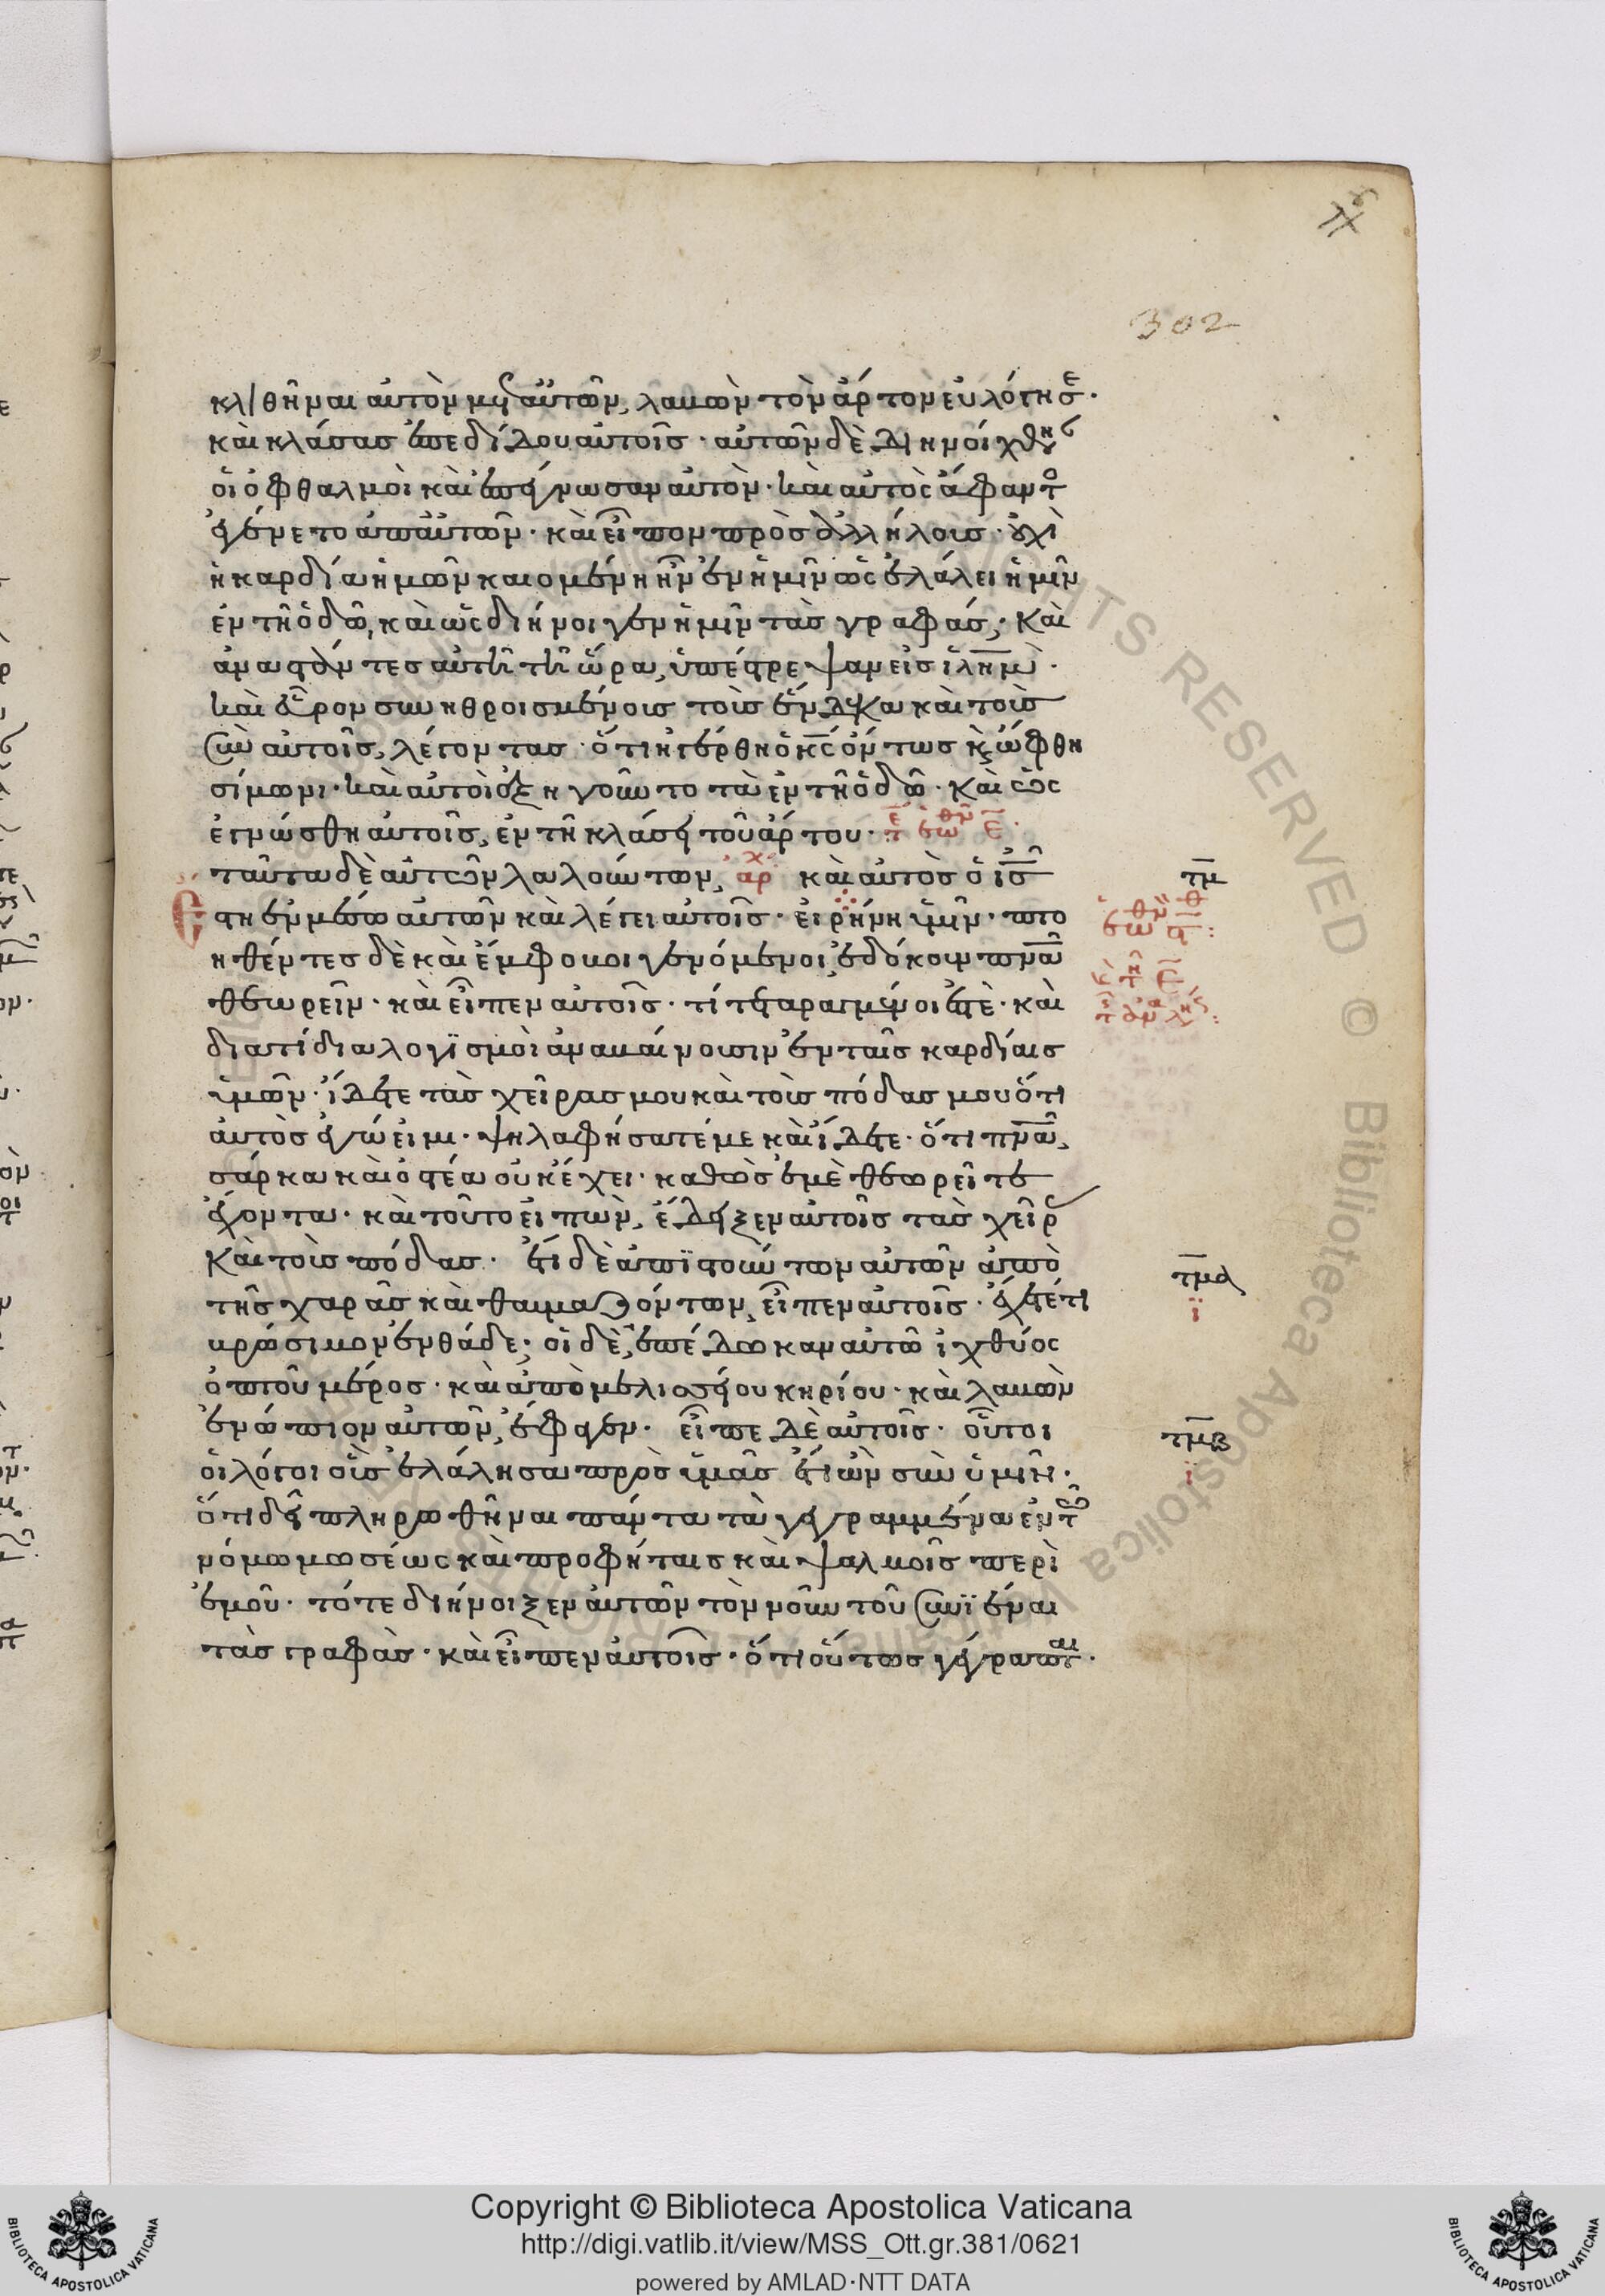 302
κλιθῆναι αὐτὸν μετ' αὐτῶν, λαβὼν τὸν ἄρτον εὐλόγησε·
καὶ κλάσας ἐπεδίδου αὐτοῖς· αὐτῶν δὲ διηνοίχθησ
οἱ ὀφθαλμοὶ καὶ ἐπέγνωσαν αὐτὸν· καὶ αὐτὸς ἄφαντο
ἐγένετο ἀπ' αὐτῶν· καὶ εἶπον πρὸς ἀλλήλους· οὐχὶ
ἡ καρδία ἡμῶν καιομένη ἦν ἐν ἡμῖν ὡς ἐλάλει ἡμῖν
ἐν τῇ ὁδῷ, καὶ ὡς διήνοιγεν ἡμῖν τὰς γραφάς; Καὶ
ἀναστάντες αὐτῇ τῇ ὥρα, ὑπέστρεψαν εἰς ἰλημ·
καὶ εὗρον συνηθροισμένους τοὺς ἕνδεκα καὶ τοὺς
σὺν αὐτοῖς, λέγοντας· ὅτι ἠγέρθη ὁ κς ὄντως κ ὤφθη
σίμωνι· καὶ αὐτοὶ ἐξηγοῦντο τὰ ἐν τῇ ὁδῷ· καὶ ὡς
ἐγνώσθη αὐτοῖς, ἐν τῇ κλάσει τοῦ ἄρτου·
ταῦτα δὲ αὐτῶν λαλούντων, αρχ καὶ αὐτὸς ὁ ις
τμ
ἔστη ἐν μέσω αὐτῶν καὶ λέγει αὐτοῖς· εἰρήνη ὑμῖν· πτο
ηθέντες δὲ καὶ ἔμφοβοι γενόμενοι, ἐδόκουν πνα
θεωρεῖν· καὶ εἶπεν αὐτοῖς· τί τεταραγμένοι ἐστὲ· καὶ
διατί διαλογϊσμοὶ ἀναβαίνουσιν ἐν ταῖς καρδίαις
ὑμῶν· ἴδετε τὰς χεῖρας μου καὶ τοὺς πόδας μου ὅτι
αὐτὸς ἐγώ εἰμι· ψηλαφήσατέ με καὶ ἴδετε· ὅτι πνα,
σάρκα καὶ ὀστέα οὐκ ἔχει· καθὼς ἐμὲ θεωρεῖτε
ἔχοντα· καὶ τοῦτο εἰπὼν, ἔδειξεν αὐτοῖς τὰς χεῖρ
Καὶ τοὺς πόδας· ἔτι δὲ ἀπϊστούντων αὐτῶν ἀπὸ
τμα
τῆς χαρᾶς καὶ θαυμαζόντων, εἶπεν αὐτοῖς· ἔχετέ τι
ι
βρώσιμον ἐνθάδε; οἱ δὲ, ἐπέδωκαν αὐτῶ ἰχθύος
ὀπτοῦ μέρος· καὶ ἀπὸ μελισσίου κηρίου· καὶ λαβὼν
ἐνώπιον αὐτῶν, ἔφαγεν· εἶπε δὲ αὐτοῖς· οὗτοι
τμβ
οἱ λόγοι οὓς ἐλάλησα πρὸς ὑμᾶς ἔτι ὢν σὺν ὑμῖν·
ι
ὅτι δεῖ πληρωθῆναι πάντα τὰ γεγραμμένα ἐν τῶ
νόμω μωσέως καὶ προφήταις καὶ ψαλμοῖς περὶ
ἐμοῦ· τότε διήνοιξεν αὐτῶν τὸν νοῦν τοῦ συνϊέναι
τὰς γραφὰς· καὶ εἶπεν αὐτοῖς· ὅτι οὕτως γέγραπται·
RIGHTS RESERVED © Biblioteca Apostolica Vaticana
BIBLIOTECA APOSTOLICA VATICANA
Copyright © Biblioteca Apostolica Vaticana
http://digi.vatlib.it/view/MSS_Ott.gr.381/0621
powered by AMLAD·NTT DATA
BIBLIOTECA APOSTOLICA VATICANA